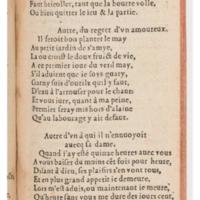 Faut bricoller, tant que la bourre volle,
Ou bien quitter le ieu & la partie.
Autre, du regrez d'vn amoureux.
Il seroit bon planter le may
Au petit iardin de s'amye,
La ou croist le doux fruict de vie,
A ce premier iour du verd may,
S'il aduient que ie soys guary,
Garny suis d'outilz qu'il y faut,
D'eau à l'arrouser pour le chaut
Et vous iure, quant à ma peine,
Premier seray mis hors d'alaine
Qu'au labourage y ait defaut.
Autre d'vn à qui il n'ennuoyoit
auecq sa dame.
Quand i'ay esté quinze heures auec vous
A vous baiser du moins cẽt fois pour heure,
Disant à dieu, ses plaisirs s'en vont tous,
Et en plus grand appetit ie demeure,
Lors m'est aduis, ou maintenant ie meure,
Qu'heure sans vous me dure des iours cent,